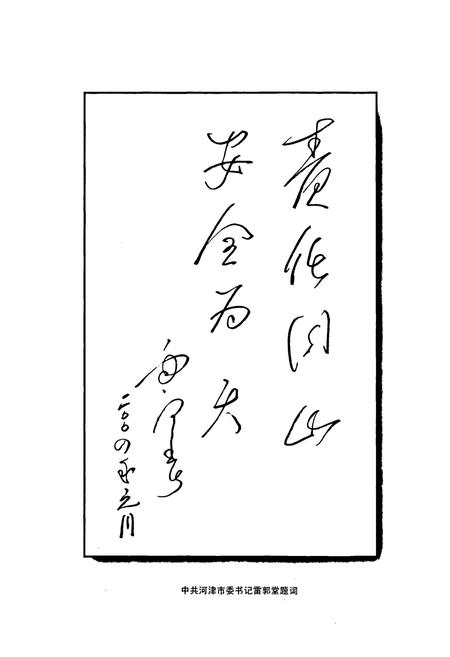 责任同山
安全为天
雷郭堂
二〇〇四年元月
中共河津市委书记雷郭堂题词